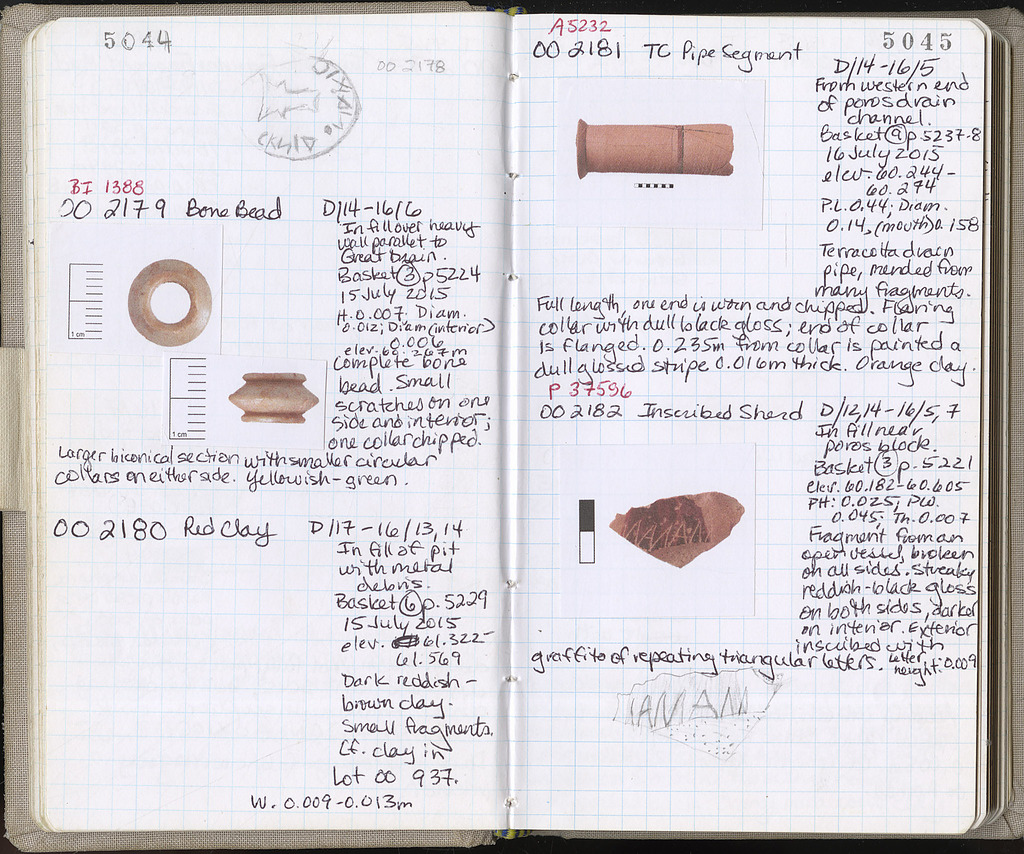 5044
OO 2178
BI 1388
OO 2179 Bone Bead D/14-16/6
In fill over heavy
wall parallel to
Great Drain.
Basket 3 p 5224
15 July 2015
H. 0.007; Diam.
0.012; Diam (interior)
0.006
elev. 60.267m
Complete bone
bead. Small
scratches on one
side and interior;
one collar chipped.
1 cm
1 cm
Larger biconical section with smaller circular
collars on either side. Yellowish-green.
OO 2180 Red Clay D/17-16/13,14
In fill of pit
with metal
debris.
Basket 6 p. 5229
15 July 2015
elev. 61.322-
61.569
Dark reddish-
brown clay.
Small fragments.
Cf. clay in
Lot OO 937.
W. 0.009-0.013m
5045
A5232
OO 2181 TC Pipe Segment
D/14-16/5
From western end
of poros drain
channel.
Basket 9 p 5237-8
16 July 2015
elev. 60.244-
60.274
P.L. 0.44; Diam.
0.14, (mouth) 0.158
Terracotta drain
pipe, mended from
many fragments.
Full length, one end is worn and chipped. Flaring
collar with dull black gloss; end of collar
is flanged. 0.235m from collar is painted a
dull glossed stripe 0.016m thick. Orange clay.
P 37596
OO 2182 Inscribed Sherd D/12,14-16/5,7
In fill near
poros block.
Basket 3 p. 5221
elev. 60.182-60.605
PH: 0.025; PW.
0.045; Th. 0.007
Fragment from an
open vessel, broken
on all sides. Streaky
reddish-black gloss
on both sides, darker
on interior. Exterior
inscribed with
graffito of repeating triangular letters. Letter
height: 0.009